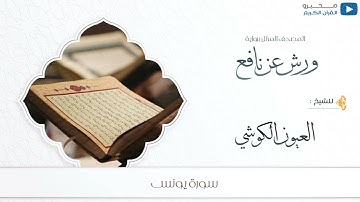 محبرو
القرآن الكريم
المصحف المرتل برواية
ورش عن نافع
للشيخ :
العيون الكوشي
سورة يونس